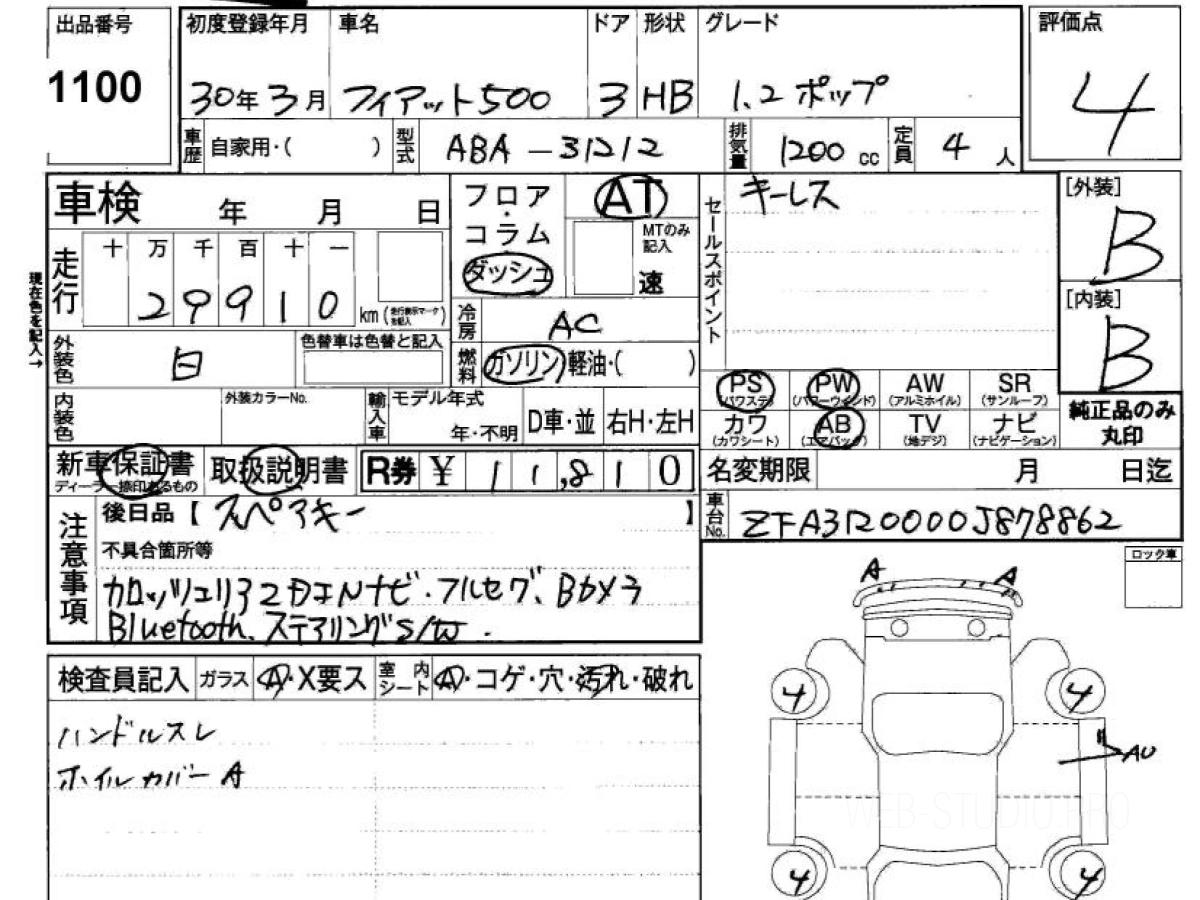 出品番号
1100
初度登録年月 車名 ドア 形状 グレード
30年3月 フィアット500 3 HB 1.2 ポップ
評価点
4
車歴 自家用・( ) 型式 ABA-31212 排気量 1200 cc 定員 4 人
車検 年 月 日
フロア・コラム ダッシュ
AT
MTのみ記入
速
セールスポイント
キーレス
[外装]
B
[内装]
B
現在色を記入→
走行 十 万 千 百 十 一
29910 km (走行表示マークを記入)
冷房 AC
外装色 白 色替車は色替と記入
燃料 ガソリン 軽油・( )
PS PW AW SR
(パワステ) (パワーウインド) (アルミホイル) (サンルーフ)
カワ AB TV ナビ
(カワシート) (エアバック) (地デジ) (ナビゲーション)
純正品のみ丸印
内装色 外装カラーNo. 輸入車 モデル年式 年・不明 D車・並 右H・左H
新車保証書 取扱説明書 R券 ¥ 11,810
ディーラー捺印あるもの
名変期限 月 日迄
注意事項
後日品【スペアキー 】
車台No. ZFA3120000J878862
不具合箇所等
カロッツェリア2DINナビ・フルセグ、Bカメラ
Bluetooth、ステアリングS/W.
ロック車
A A
検査員記入 ガラス A・X要ス 室内シート A・コゲ・穴・汚れ・破れ
ハンドルスレ
ホイルカバーA
4 4
AU
WEB-STUDIO.PRO
4 4